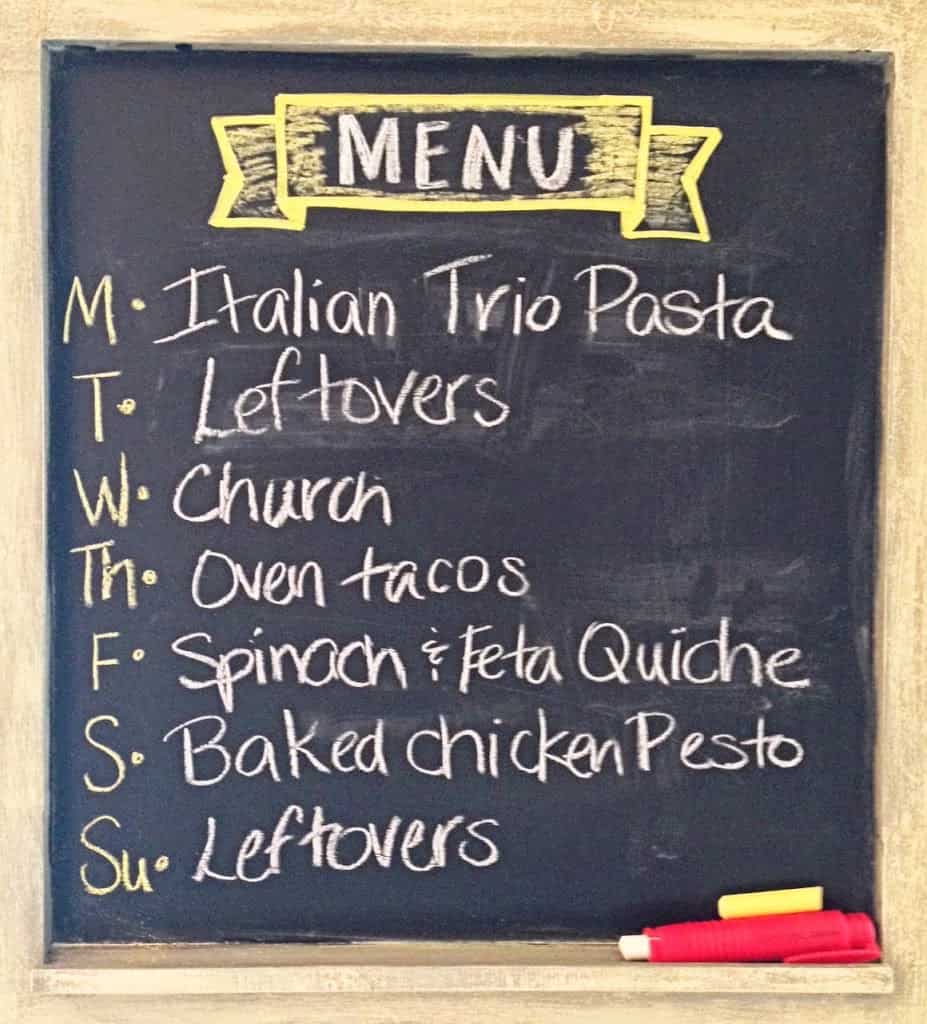 MENU
M. Italian Trio Pasta
T. Leftovers
W. Church
Th. Oven tacos
F. Spinach & Feta Quiche
S. Baked chicken Pesto
Su. Leftovers